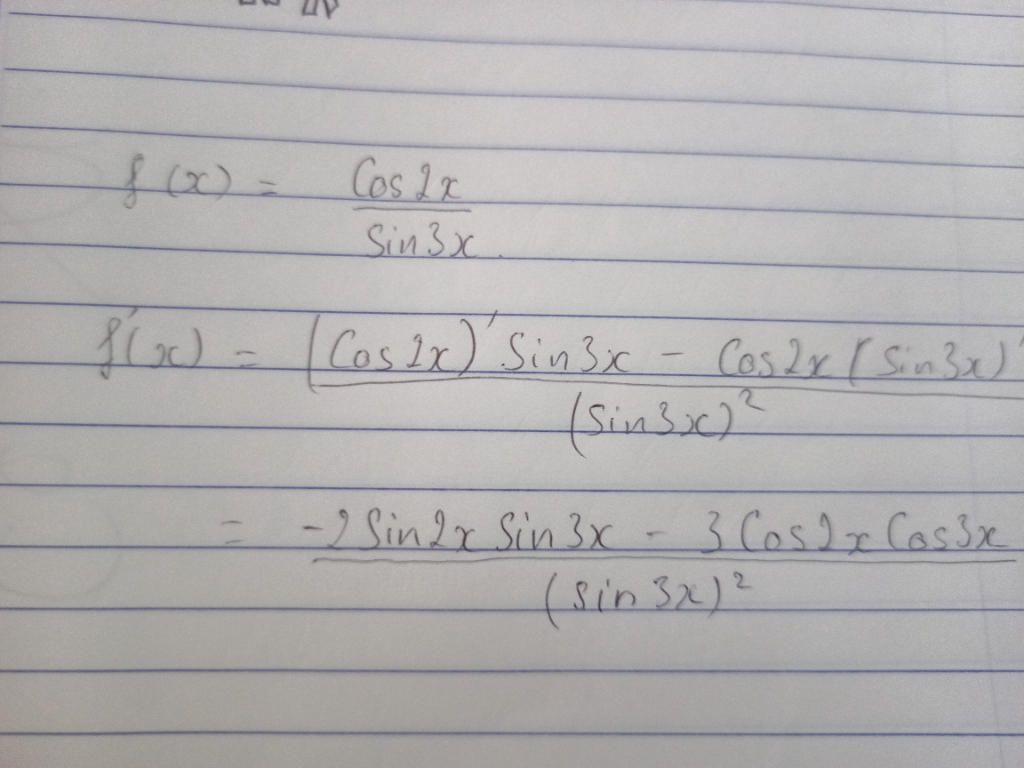 f(x) = Cos2x / Sin3x
f'(x) = (Cos2x)' Sin3x - Cos2x (Sin3x)' / (Sin3x)²
= -2Sin2x Sin3x - 3Cos2x Cos3x / (Sin3x)²